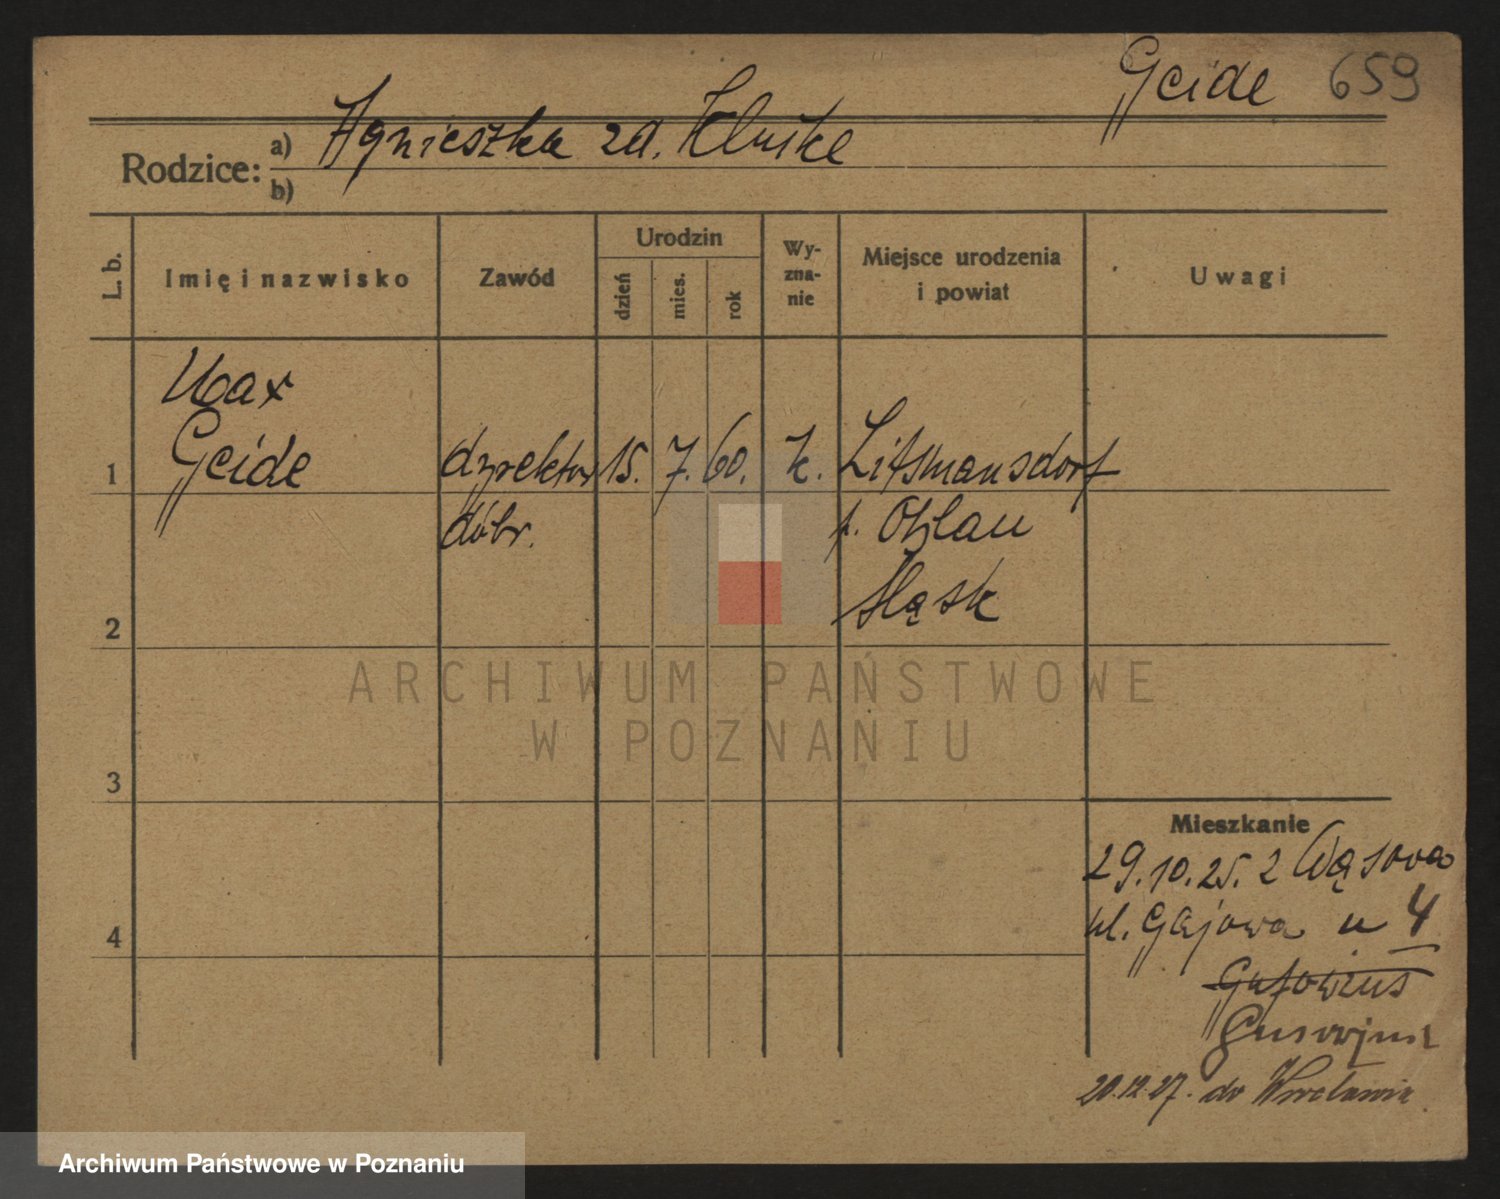 Geide 659
Rodzice: a) Agnieszka zd. Kluske
b)
L. b. Imię i nazwisko Zawód Urodzin dzień mies. rok Wy-zna-nie Miejsce urodzenia i powiat Uwagi
Max
1 Geide dyrektor 15. 7. 60. k. Litsmansdorf
dóbr. p. Ohlau
2 Śląsk
ARCHIWUM PAŃSTWOWE
W POZNANIU
3
Mieszkanie
29.10.25. z Wąsowa
ul. Gajowa u 4
4
20.12.27. do Wrocławia
Archiwum Państwowe w Poznaniu